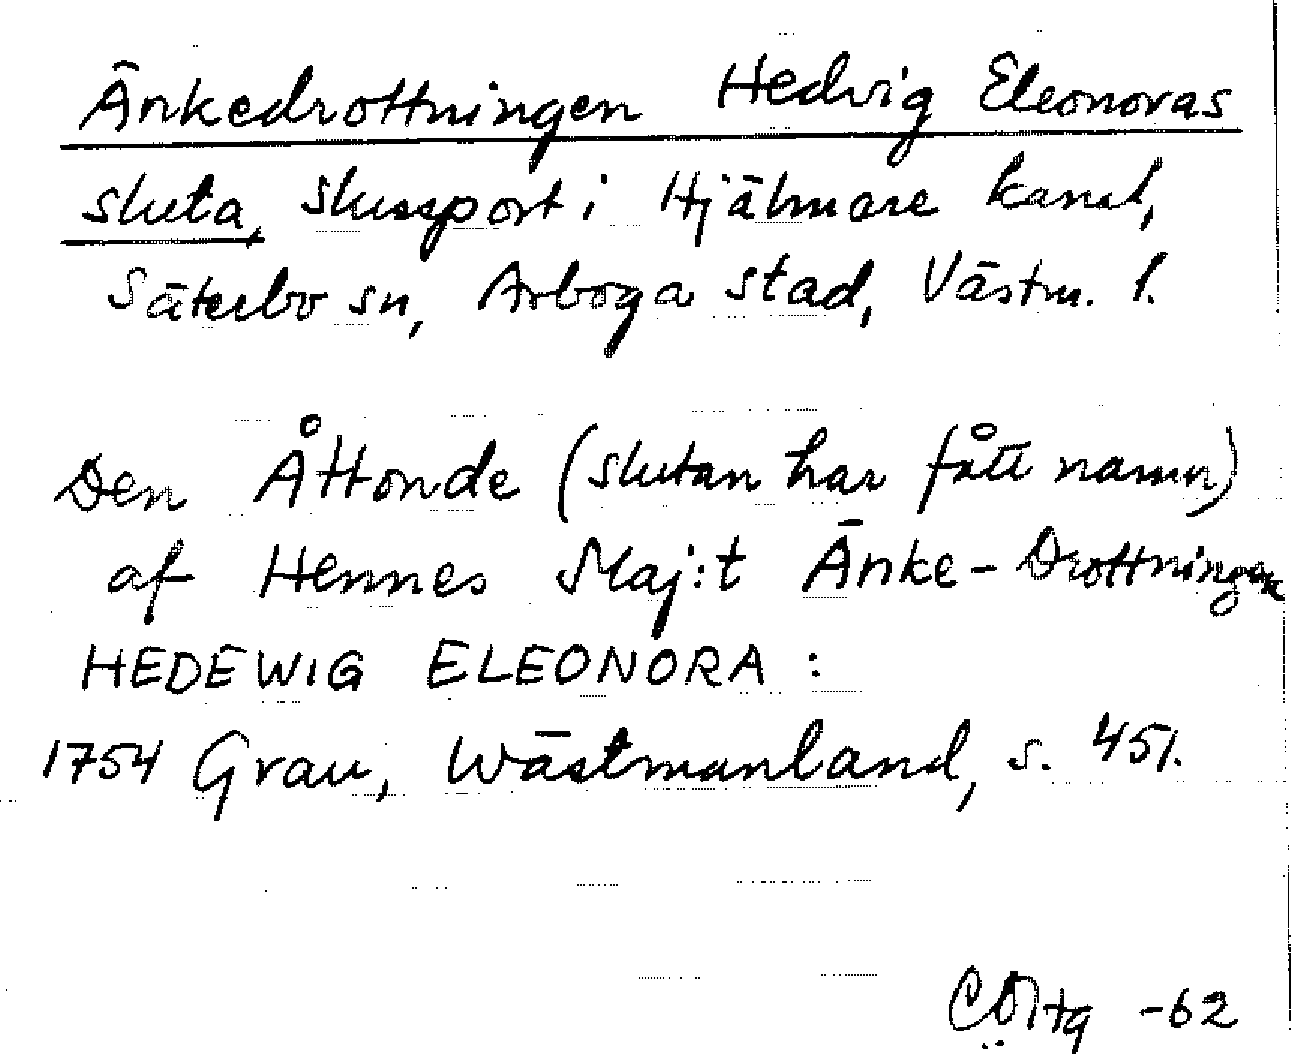 Änkedrottningen Hedvig Eleonoras
sluta, slussport i Hjälmare kanal,
Säterbo sn, Arboga stad, Västm. l.
Den Åttonde (slutan har fått namn)
af Hennes Maj:t Änke-Drottningen
HEDEWIG ELEONORA:
1754 Grau, Wästmanland, s. 451.
-62